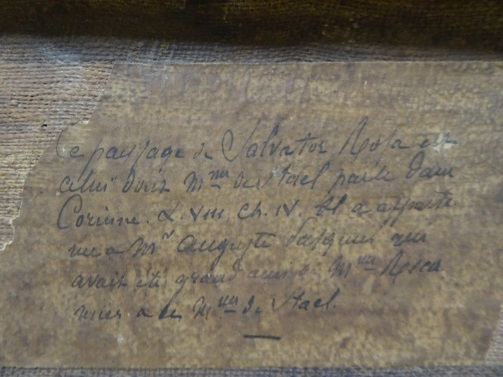 Ce paysage de Salvator Rosa est
celui dont Mme de Stael parle dans
Corinne. L. VIII. ch. IV. Il a apparte
nu a Mr Auguste Pasquier qui
avait été grand ami de Mme Réca
mier et de Mme de Stael.